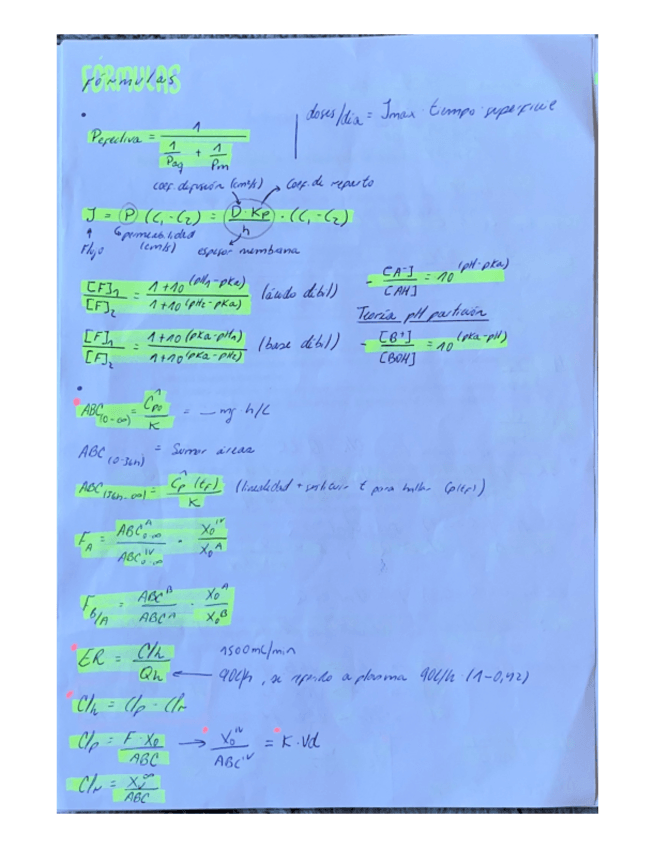 FÓRMULAS
Pefectiva = 1 / (1/Paq + 1/Pm)
doses/día = Jmax · tiempo · superficie
coef. difusión (cm²/s) Coef. de reparto
J = P (C1-C2) = D·Kp / h · (C1-C2)
Flujo permeabilidad (cm/s) espesor membrana
[F]1 / [F]2 = 1+10^(pH1-pKa) / 1+10^(pH2-pKa) (ácido débil)
- [A⁻] / [AH] = 10^(pH-pKa)
Teoría pH partición
[F]1 / [F]2 = 1+10^(pKa-pH1) / 1+10^(pKa-pH2) (base débil)
- [B⁺] / [BOH] = 10^(pKa-pH)
ABC(0-∞) = Ĉp0 / K = — mg·h/L
ABC(0-36h) = Sumar áreas
ABC(36h-∞) = Ĉp (tF) / K (linealidad + sustituir t para hallar Cp(tF))
FA = ABC0-∞^A / ABC0-∞^IV · X0^IV / X0^A
FB/A = ABC^B / ABC^A · X0^A / X0^B
ER = Clh / Qh
1500 mL/min
90L/h, se refiere a plasma 90L/h (1-0,42)
Clh = Clp - Clr
Clp = F·X0 / ABC → X0^IV / ABC^IV = K·Vd
Clr = Xu^∞ / ABC